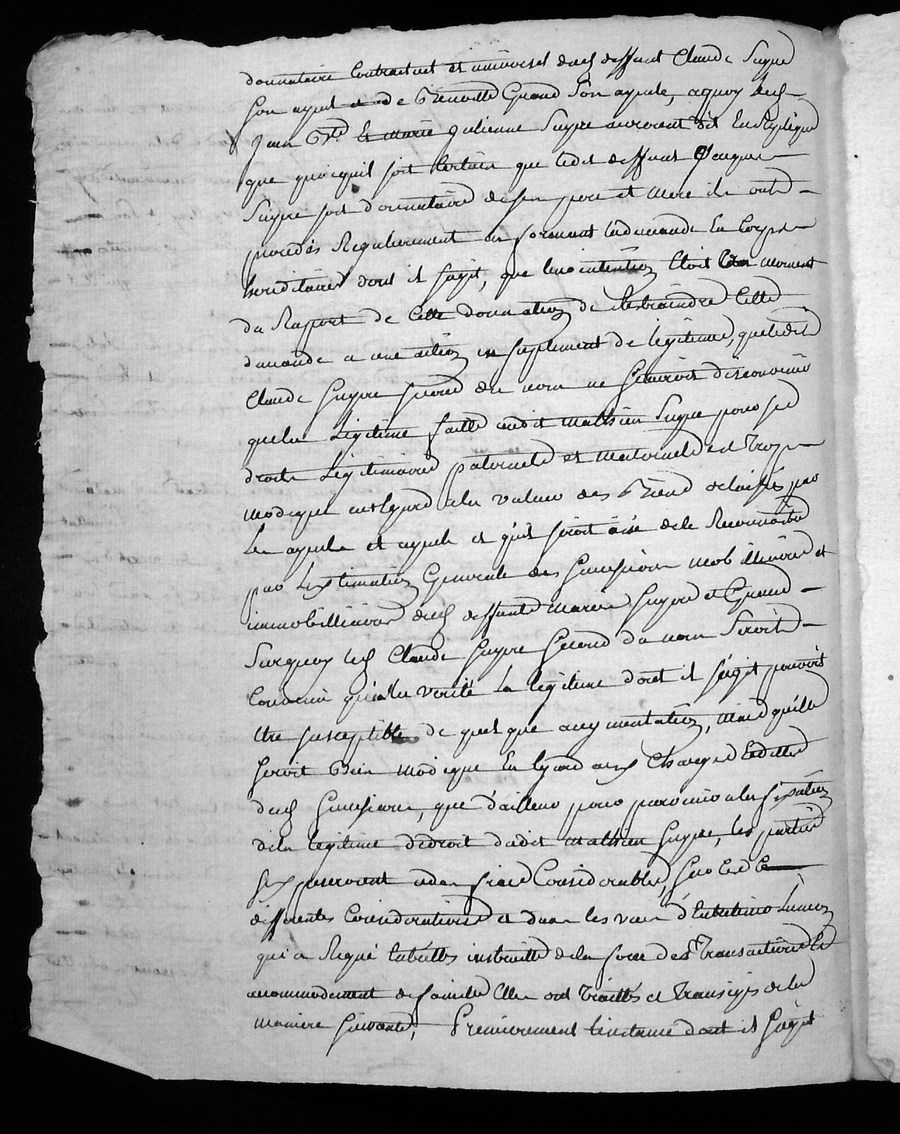 donnataire Contractuel et universel dud deffunt Claude Suyre
Son ayeul et de Grand Son ayeule, aquoy led
Jean et marie julienne Suyre auroient dit En Replique
que quoiquil soit Certain que ledit deffunt Jacques
Suyre soit donnataire de ses pere et mere ils ont
procedés Regulierement en formant la demande En Corps
hereditaires dont il sagit, que leur intention Etoit au moment
du Raport de Cette donnation de Restraindre Cette
demande a une action en suplement de legitime, que ledit
Claude Suyre second du nom ne sauroit disconvenir
que la Legitime faitte audit mathieu Suyre pour ses
droits Legitimaires paternels et maternels est Trop
modique au Egard a la valeur des Biens delaissés par
Les ayeuls et ayeule et quil seroit aisé de le Reconnoitre
par Lestimation Generale des successions mobilliaires et
immobilliaires dud deffunts Suyre et Grand
Surquoy led Claude Suyre second du nom Seroit
Convenu qu'a la verité La legitime dont il sagit pouvoit
Etre susceptible de quelque augmentation, mais qu'elle
seroit Bien modique En Egard aux Charges Et dettes
dud successions, que d'ailleurs pour parvenir a la fixation
de la legitime de droit dudit mathieu Suyre, les parties
s'exposeroient a des frais Considerables, sur
differentes Considerations et dans les vues d'Entretenir Lunion
qui a Regné Entrelles instruittes de la force des Transactions Et
accommodement de famille Elles ont Traittés et Transigés de la
maniere suivante, Premierement Linstance dont il sagit